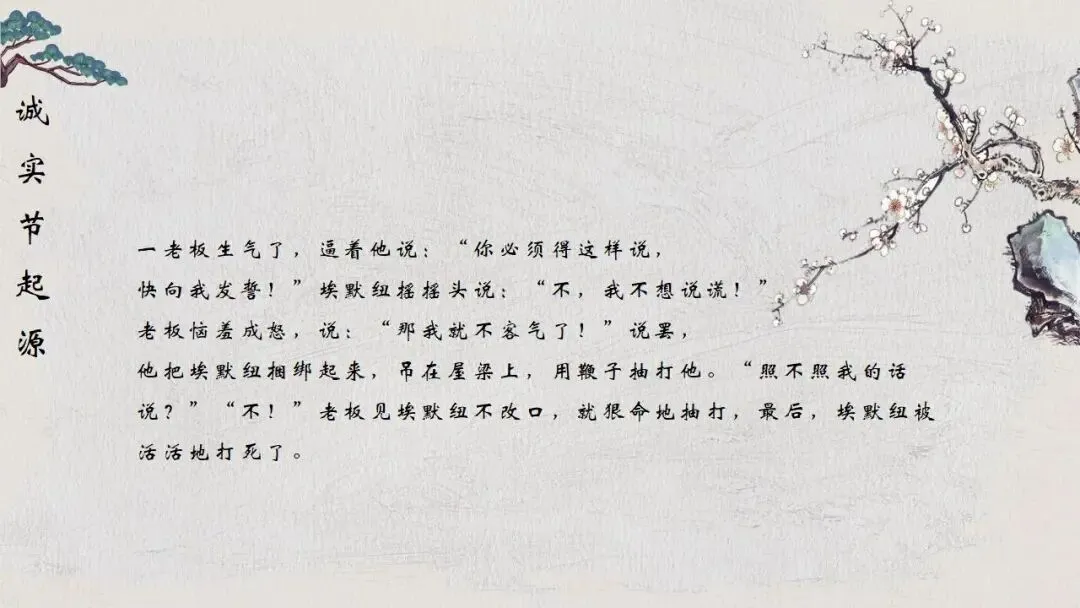 诚实节起源
一老板生气了，逼着他说：“你必须得这样说，
快向我发誓！”埃默纽摇摇头说：“不，我不想说谎！”
老板恼羞成怒，说：“那我就不客气了！”说罢，
他把埃默纽捆绑起来，吊在屋梁上，用鞭子抽打他。“照不照我的话
说？”“不！”老板见埃默纽不改口，就狠命地抽打，最后，埃默纽被
活活地打死了。